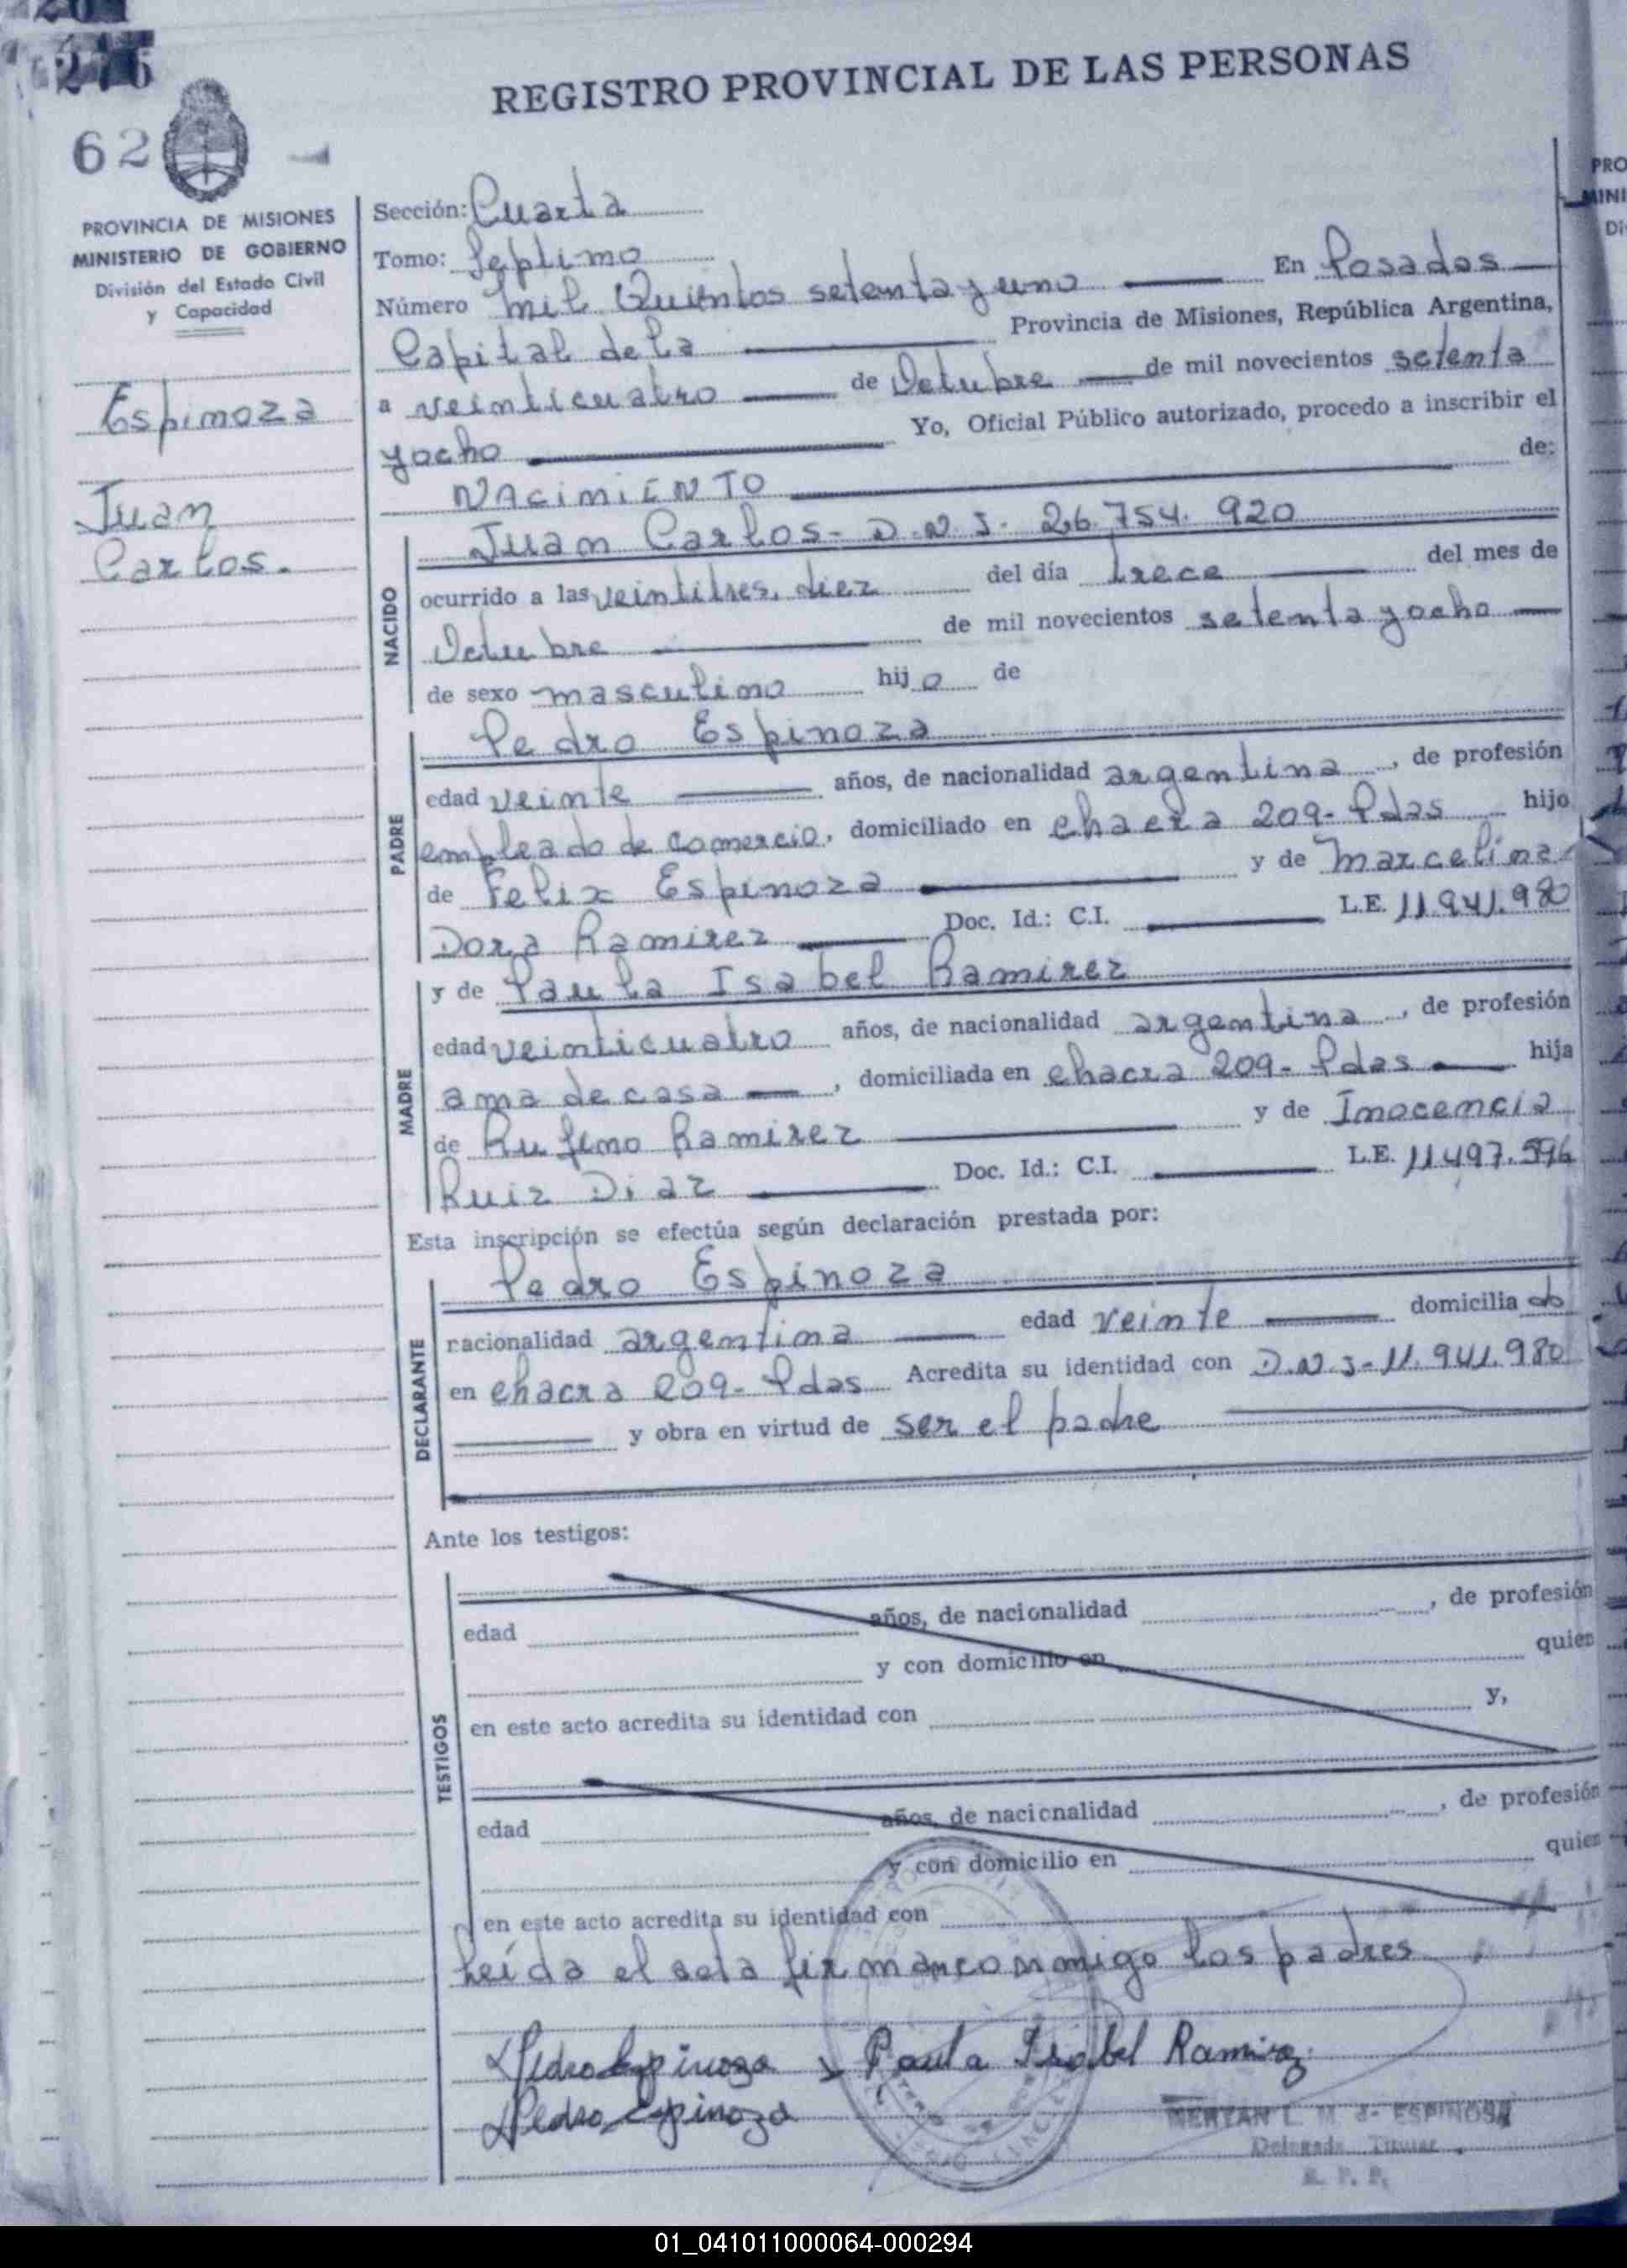 276
REGISTRO PROVINCIAL DE LAS PERSONAS
62
PROVINCIA DE MISIONES
MINISTERIO DE GOBIERNO
División del Estado Civil
y Capacidad
Espinoza
Juan
Carlos.
Sección: Cuarta
Tomo: Septimo
Número mil Quientos setenta y uno En Posadas
Capital de la Provincia de Misiones, República Argentina,
a veinticuatro de Octubre de mil novecientos setenta
y ocho Yo, Oficial Público autorizado, procedo a inscribir el
NACIMIENTO de:
NACIDO
Juan Carlos - D.N.I. 26.754.920
ocurrido a las veintitres, diez del día trece del mes de
Octubre de mil novecientos setenta y ocho
de sexo masculino hijo de
PADRE
Pedro Espinoza
edad veinte años, de nacionalidad argentina, de profesión
empleado de comercio, domiciliado en chacra 209- Pdas hijo
de Felix Espinoza y de Marcelina
Dora Ramirez Doc. Id.: C.I. L.E. 11.941.980
MADRE
y de Paula Isabel Ramirez
edad veinticuatro años, de nacionalidad argentina, de profesión
ama de casa, domiciliada en chacra 209- Pdas hija
de Rufino Ramirez y de Inocencia
Ruiz Diaz Doc. Id.: C.I. L.E. 11.497.596
Esta inscripción se efectúa según declaración prestada por:
DECLARANTE
Pedro Espinoza
nacionalidad argentina edad veinte domiciliado
en chacra 209- Pdas Acredita su identidad con D.N.I- 11.941.980
y obra en virtud de ser el padre
Ante los testigos:
TESTIGOS
edad años, de nacionalidad , de profesión
y con domicilio en quien
en este acto acredita su identidad con y,
edad años, de nacionalidad , de profesión
y con domicilio en quien
en este acto acredita su identidad con
Leída el acta firman conmigo los padres
Pedro Espinoza Paula Isabel Ramirez
Pedro Espinoza
MERYAN L. M. de ESPINOSA
Delegada Titular
R. P. P.
01_041011000064-000294